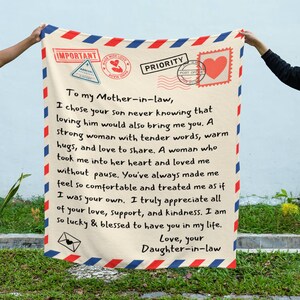 IMPORTANT
PRIORITY
To my Mother-in-law,
I chose your son never knowing that
loving him would also bring me you. A
strong woman with tender words, warm
hugs, and love to share. A woman who
took me into her heart and loved me
without pause. You've always made me
feel so comfortable and treated me as if
I was your own. I truly appreciate all
of your love, support, and kindness. I am
so lucky & blessed to have you in my life.
Love, your
Daughter-in-law